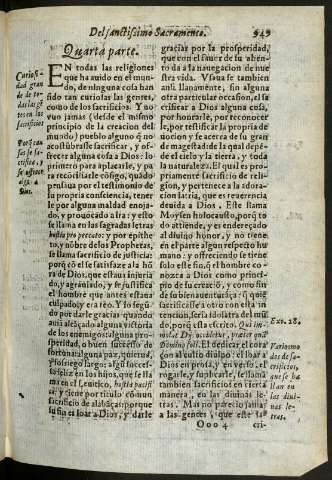 Del sanctissimo Sacramento. 949
Quarta parte.
Curiosi-
dad gran
de de to-
das las gē
tes en los
sacrificios
Porq̃ cau
sas se sa-
crifica, y
se ofrece
algo a
Dios.
EN todas las religiones
que ha auido en el mun-
do, de ninguna cosa han
sido tan curiosas las gentes,
como de los sacrificios. Y no
vuo jamas (desde el mismo
principio de la creacion del
mundo) pueblo alguno q̃ no
acostũbrasse sacrificar, y of-
frecer alguna cosa a Dios: lo
primero para aplacarle, y pa
ra recõciliarle cõsigo, quãdo
pensaua por el testimonio de
su propria consciencia, tener
le por alguna maldad enoja-
do, y prouocado a ira: y esto
se llama en las sagradas letras
hostia pro peccato: y por epithe
to, y nõbre de los Prophetas,
se llama sacrificio de justicia:
porq̃ cõ el se satisfaze a la hõ
ra de Dios, que estaua injuria
da, y agrauiada, y se justifica
el hombre que antes estaua
culpado, y era reo. Yo segũ-
do por darle gracias quando
auia alcãçado alguna victoria
de los enemigos: alguna pros
peridad, o buen successo de
fortuna: alguna paz, quietud,
y sossiego largo: algũ succes-
so feliz en los hijos, que se lla
ma en el Leuitico, hostia pacifi
ca; y tiene por titulo comun
sacrificio de alabãças: porque
su fin es loar a Dios, y darle
gracias por la prosperidad,
que con el fauor de su aben-
to da a la nauegacion de nue
stra vida. Vsaua se tambien
assi llanamente, sin alguna
otra particular occasion, el sa
crificar a Dios alguna cosa,
por honrarle, por reconocer
le, por testificar la propria de
uocion y fe acerca de su gran
de magestad de la qual depé-
de el cielo y la tierra, y toda
la naturaleza. El qual es pro-
priamente sacrificio de reli-
gion, y pertenece a la adora-
cion latria, que es reuerencia
deuida a Dios, Este llama
Moysen holocausto, porq̃ to
do atiende, y es enderezado
al diuino honor, y no tiene
en el parte algun respecto hu
mano: y offreciendo se tiene
solo este fin, q̃ el hombre co
nozca a Dios como princi-
pio de su creacion, y como fin
de su bienauenturãça: q̃ quien
sacrificasse a otro con esta in-
tencion, seria desterrado del mũ
do, porq̃ ella escritto. Qui im-
molat Dijs occidetur, præterquã
Domino soli. El dedicar el cora
çon al culto diuino: el loar a
Dios en prosa, y en verso, el
rogarle, y suplicarle, se llama
tambien sacrificios en cierta
manera, en las diuinas le-
tras. Mas no parecio jamas
a las gentes, que este sa-
Exo. 28.
Varios mo
dos de sa-
crificios,
que se ha
llan en
las diui-
nas le-
tras.
Ooo 4 cri-